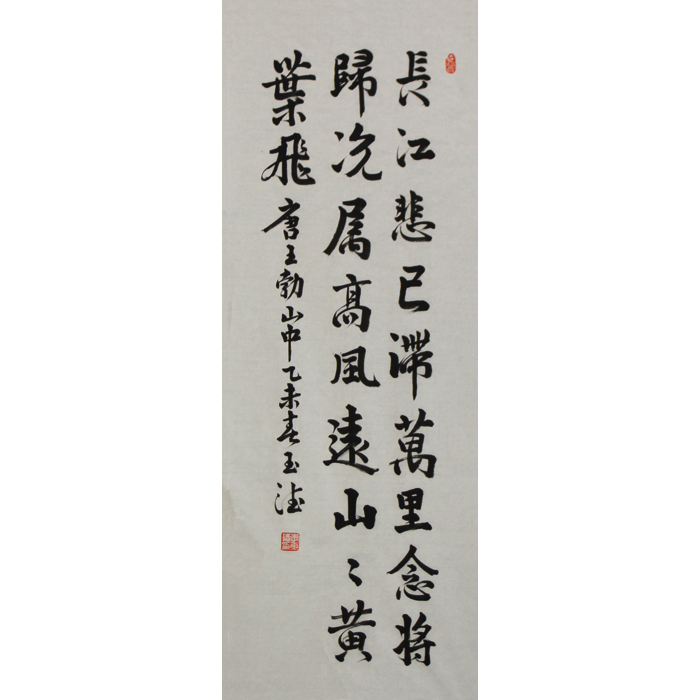 長江悲已滯萬里念將
歸况属高風遠山〻黄
葉飛唐王勃山中乙未春玉德